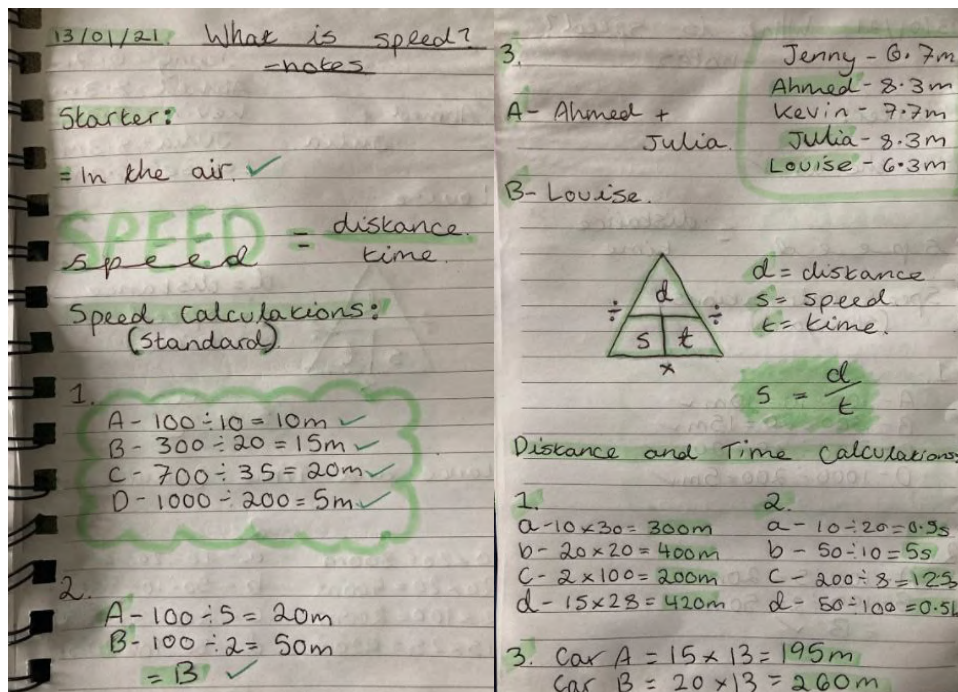 13/01/21. What is speed?
-notes
Starter:
= In the air. ✓
SPEED = distance.
speed time.
Speed Calculations:
(Standard)
1.
A - 100 ÷ 10 = 10m ✓
B - 300 ÷ 20 = 15m ✓
C - 700 ÷ 35 = 20m ✓
D - 1000 ÷ 200 = 5m ✓
2.
A - 100 ÷ 5 = 20m
B - 100 ÷ 2 = 50m
= B ✓
3.
A - Ahmed +
Julia.
B - Louise.
Jenny - 6.7m
Ahmed - 8.3m
Kevin - 7.7m
Julia - 8.3m
Louise - 6.3m
d
÷ ÷
s t
×
d = distance
s = speed.
t = time.
s = d
t
Distance and Time Calculations
1.
a - 10 × 30 = 300m
b - 20 × 20 = 400m
C - 2 × 100 = 200m
d - 15 × 28 = 420m
2.
a - 10 ÷ 20 =
b - 50 ÷ 10 = 5s
C - 200 ÷ 8 =
d - 50 ÷ 100 =
3. Car A = 15 × 13 = 195m
Car B = 20 × 13 = 260m